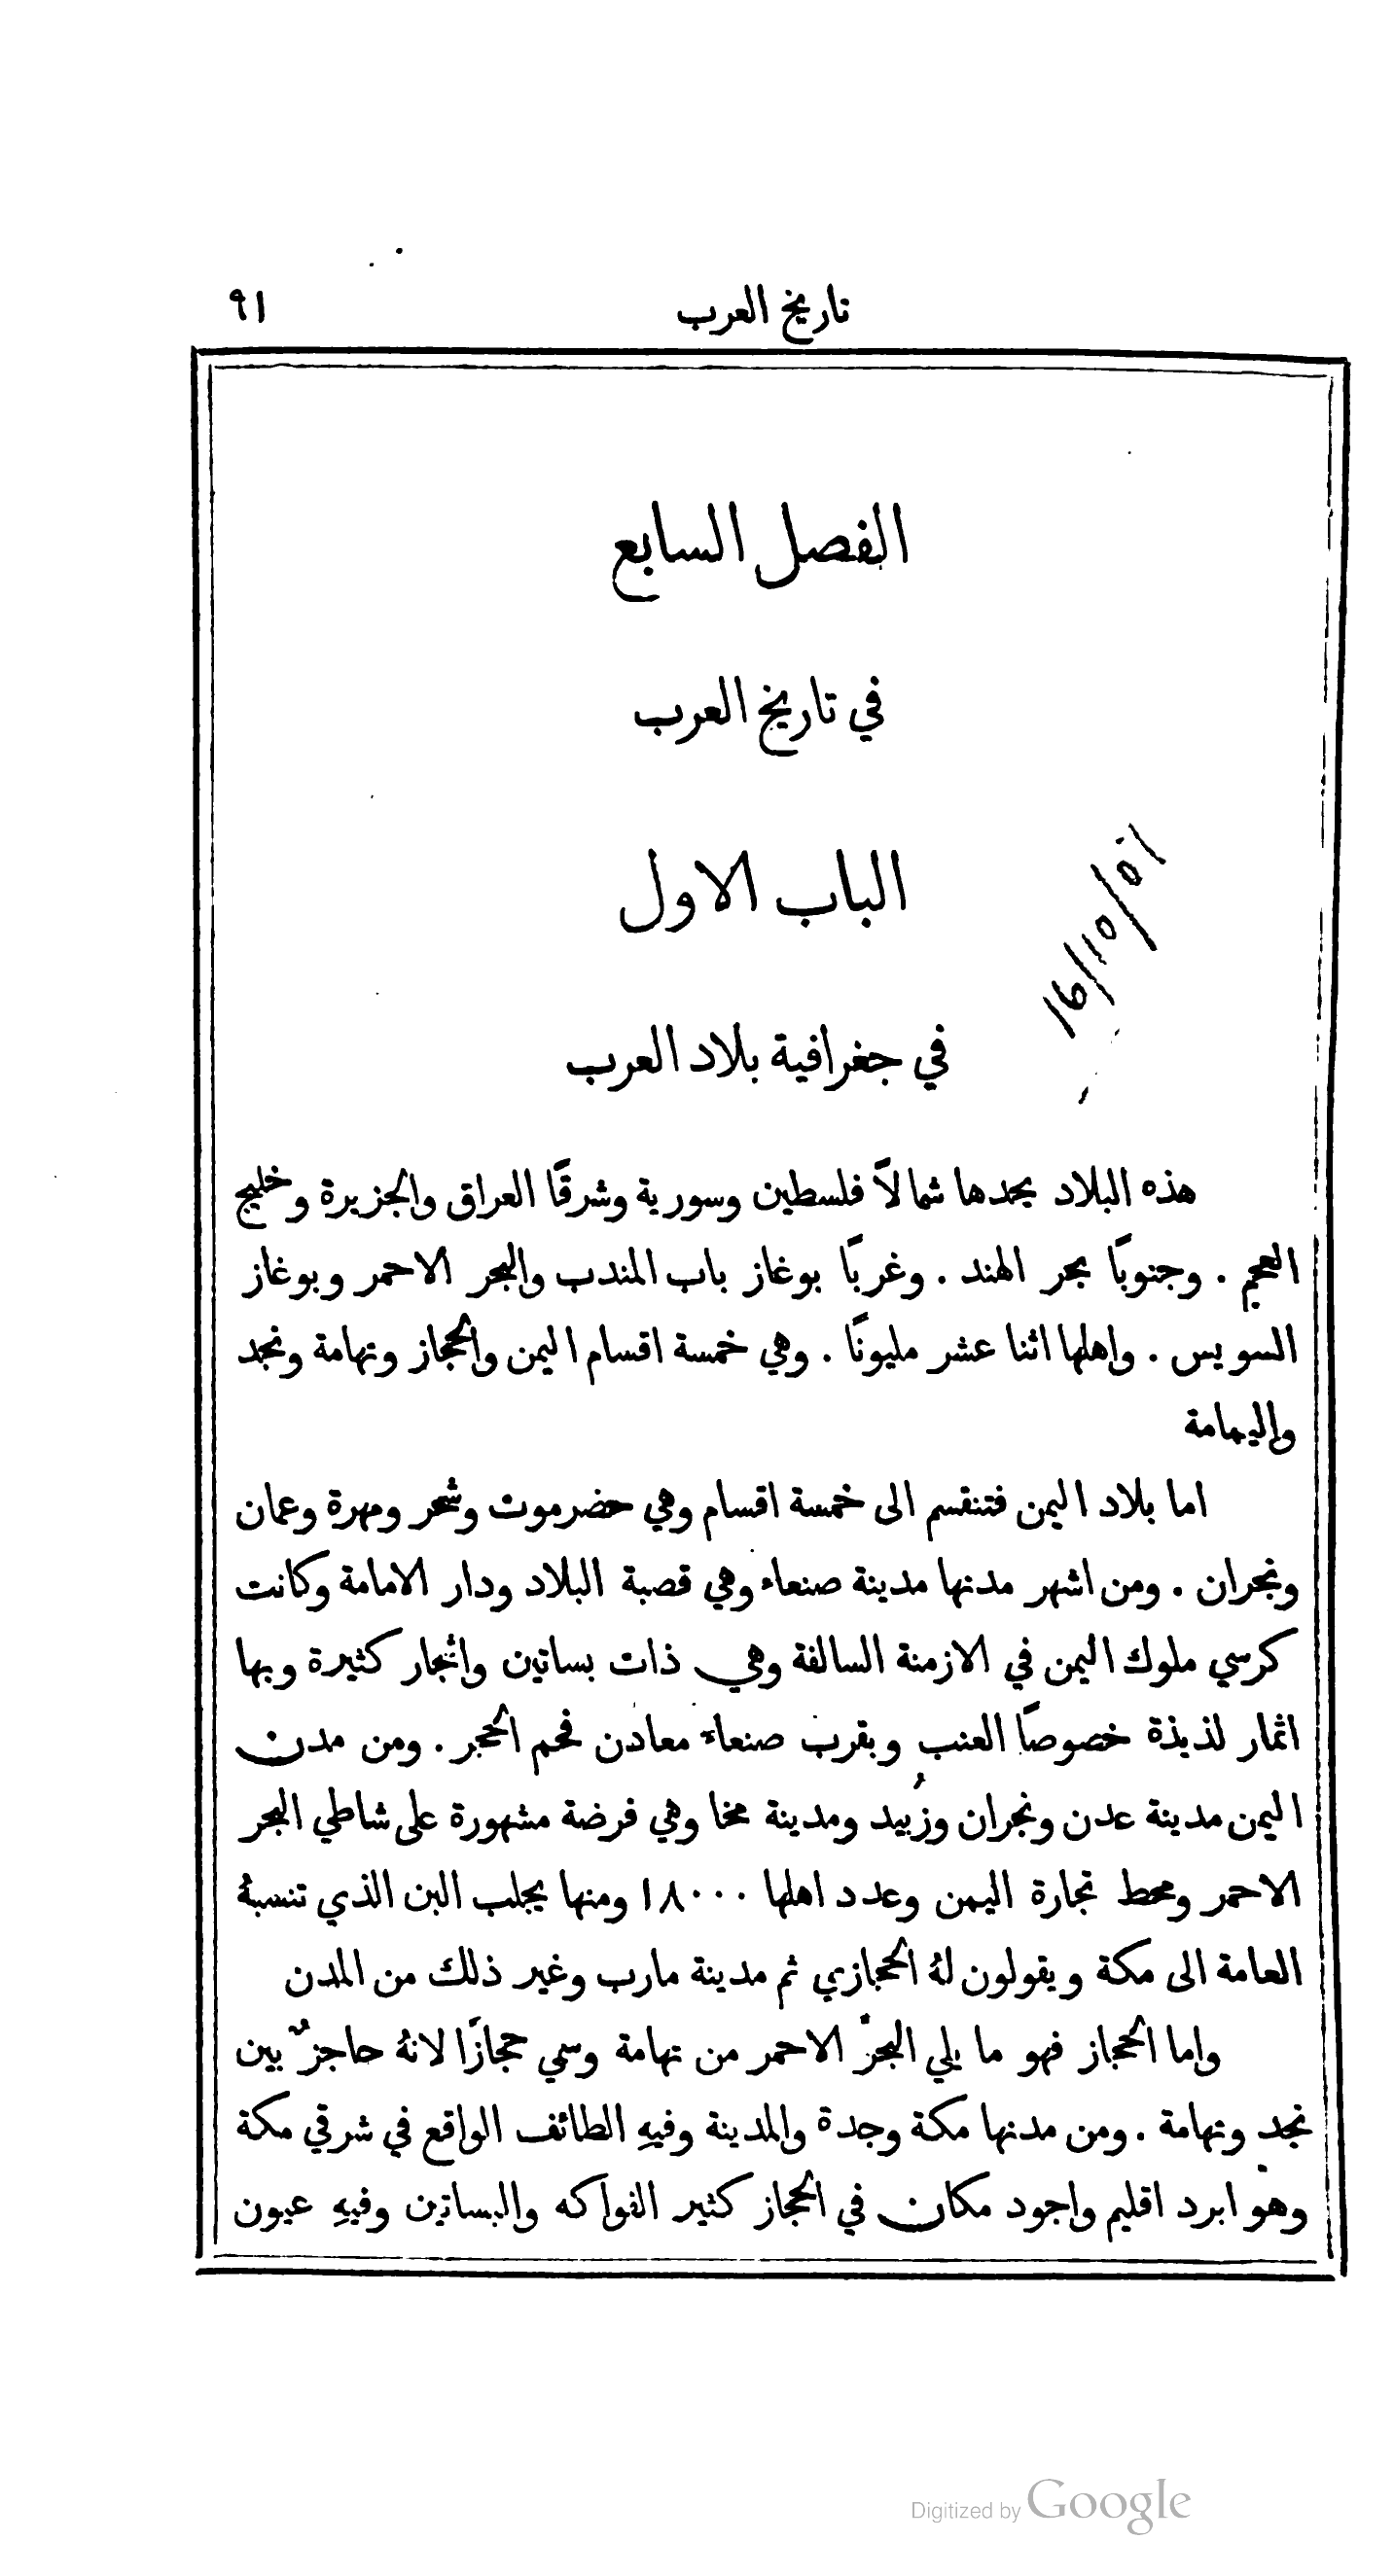 تاريخ العرب ٩١
الفصل السابع
في تاريخ العرب
الباب الاول
16/10/07
في جغرافية بلاد العرب
هذه البلاد يحدها شمالاً فلسطين وسورية وشرقًا العراق والجزيرة وخليج
العجم . وجنوبًا بحر الهند . وغربًا بوغاز باب المندب والبحر الاحمر وبوغاز
السويس . واهلها اثنا عشر مليونًا . وهي خمسة اقسام اليمن والحجاز وتهامة ونجد
واليمامة
اما بلاد اليمن فتنقسم الى خمسة اقسام وهي حضرموت وشحر ومهرة وعمان
ونجران . ومن اشهر مدنها مدينة صنعاء وهي قصبة البلاد ودار الامامة وكانت
كرسي ملوك اليمن في الازمنة السالفة وهي ذات بساتين واشجار كثيرة وبها
اثمار لذيذة خصوصًا العنب وبقرب صنعاء معادن فحم الحجر . ومن مدن
اليمن مدينة عدن ونجران وزُبيد ومدينة مخا وهي فرضة مشهورة على شاطي البحر
الاحمر ومحط تجارة اليمن وعدد اهلها ١٨٠٠٠ ومنها يجلب البن الذي تنسبهُ
العامة الى مكة ويقولون لهُ الحجازي ثم مدينة مارب وغير ذلك من المدن
واما الحجاز فهو ما يلي البحر الاحمر من تهامة وسمي حجازًا لانهُ حاجزٌ بين
نجد وتهامة . ومن مدنها مكة وجدة والمدينة وفيهِ الطائف الواقع في شرقي مكة
وهو ابرد اقليم واجود مكان في الحجاز كثير الفواكه والبساتين وفيهِ عيون
Digitized by Google